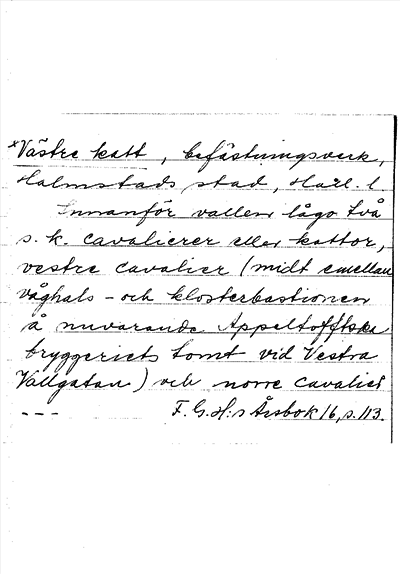 *Västre katt, befästningsverk,
Halmstads stad, Hall. l
Innanför vallen lågo två
s. k. cavalierer eller kattor,
vestre cavalier (midt emellan
våghals- och klosterbastionen
å nuvarande Appeltofftska
bryggeriets tomt vid Vestra
Vallgatan) och norre cavalier
--- F. G. H:s Årsbok 16, s. 113.